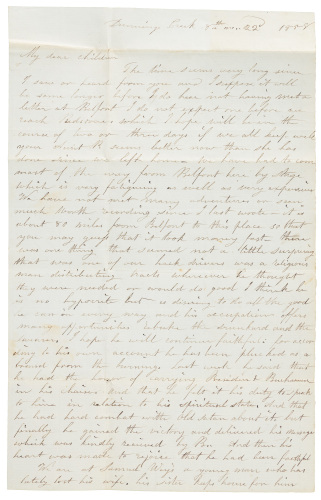 Dunning Creek 8th mo 22d 1858
My dear children
The time seems very long since
I saw or heard from you and I suppose it will
be some longer before I do hear not having met a
letter at Belfont I do not expect one before we
reach which I hope will be in the
course of two or three days if we all keep well
your aunt R seems better now than she has
done since we left home we have had to come
most of the way from Belfont here by stage
which is very fatiguing as well as very expensive
We have not met many adventures or seen
much worth recording since I last wrote - it is
about 80 miles from Belfont to this place so that
you may guess that it took us long but there
was one thing that seemed not a little surprising
that was one of our hack drivers was a religious
man distributing tracts wherever he thought
they were needed or would do good I think he
is no hypocrite but is desirous to do all the good
he can in every way and his occupation offers
many opportunities to rebuke the drunkard and the
I hope he will continue faithful for accor
ding to his own account he has been plucked as a
brand from the burning last week he said that
he had the honor of carrying President Buchanan
in his charge and that he felt it his duty to speak
to him in relation to his spiritual state and that
he had hard combat with old satan about it but
finally he gained the victory and delivered his message
which was kindly received by the and then his
heart was made to rejoice that he had been faithful
We are at Samuel a young man who has
lately lost his wife. his sister keeps house for him